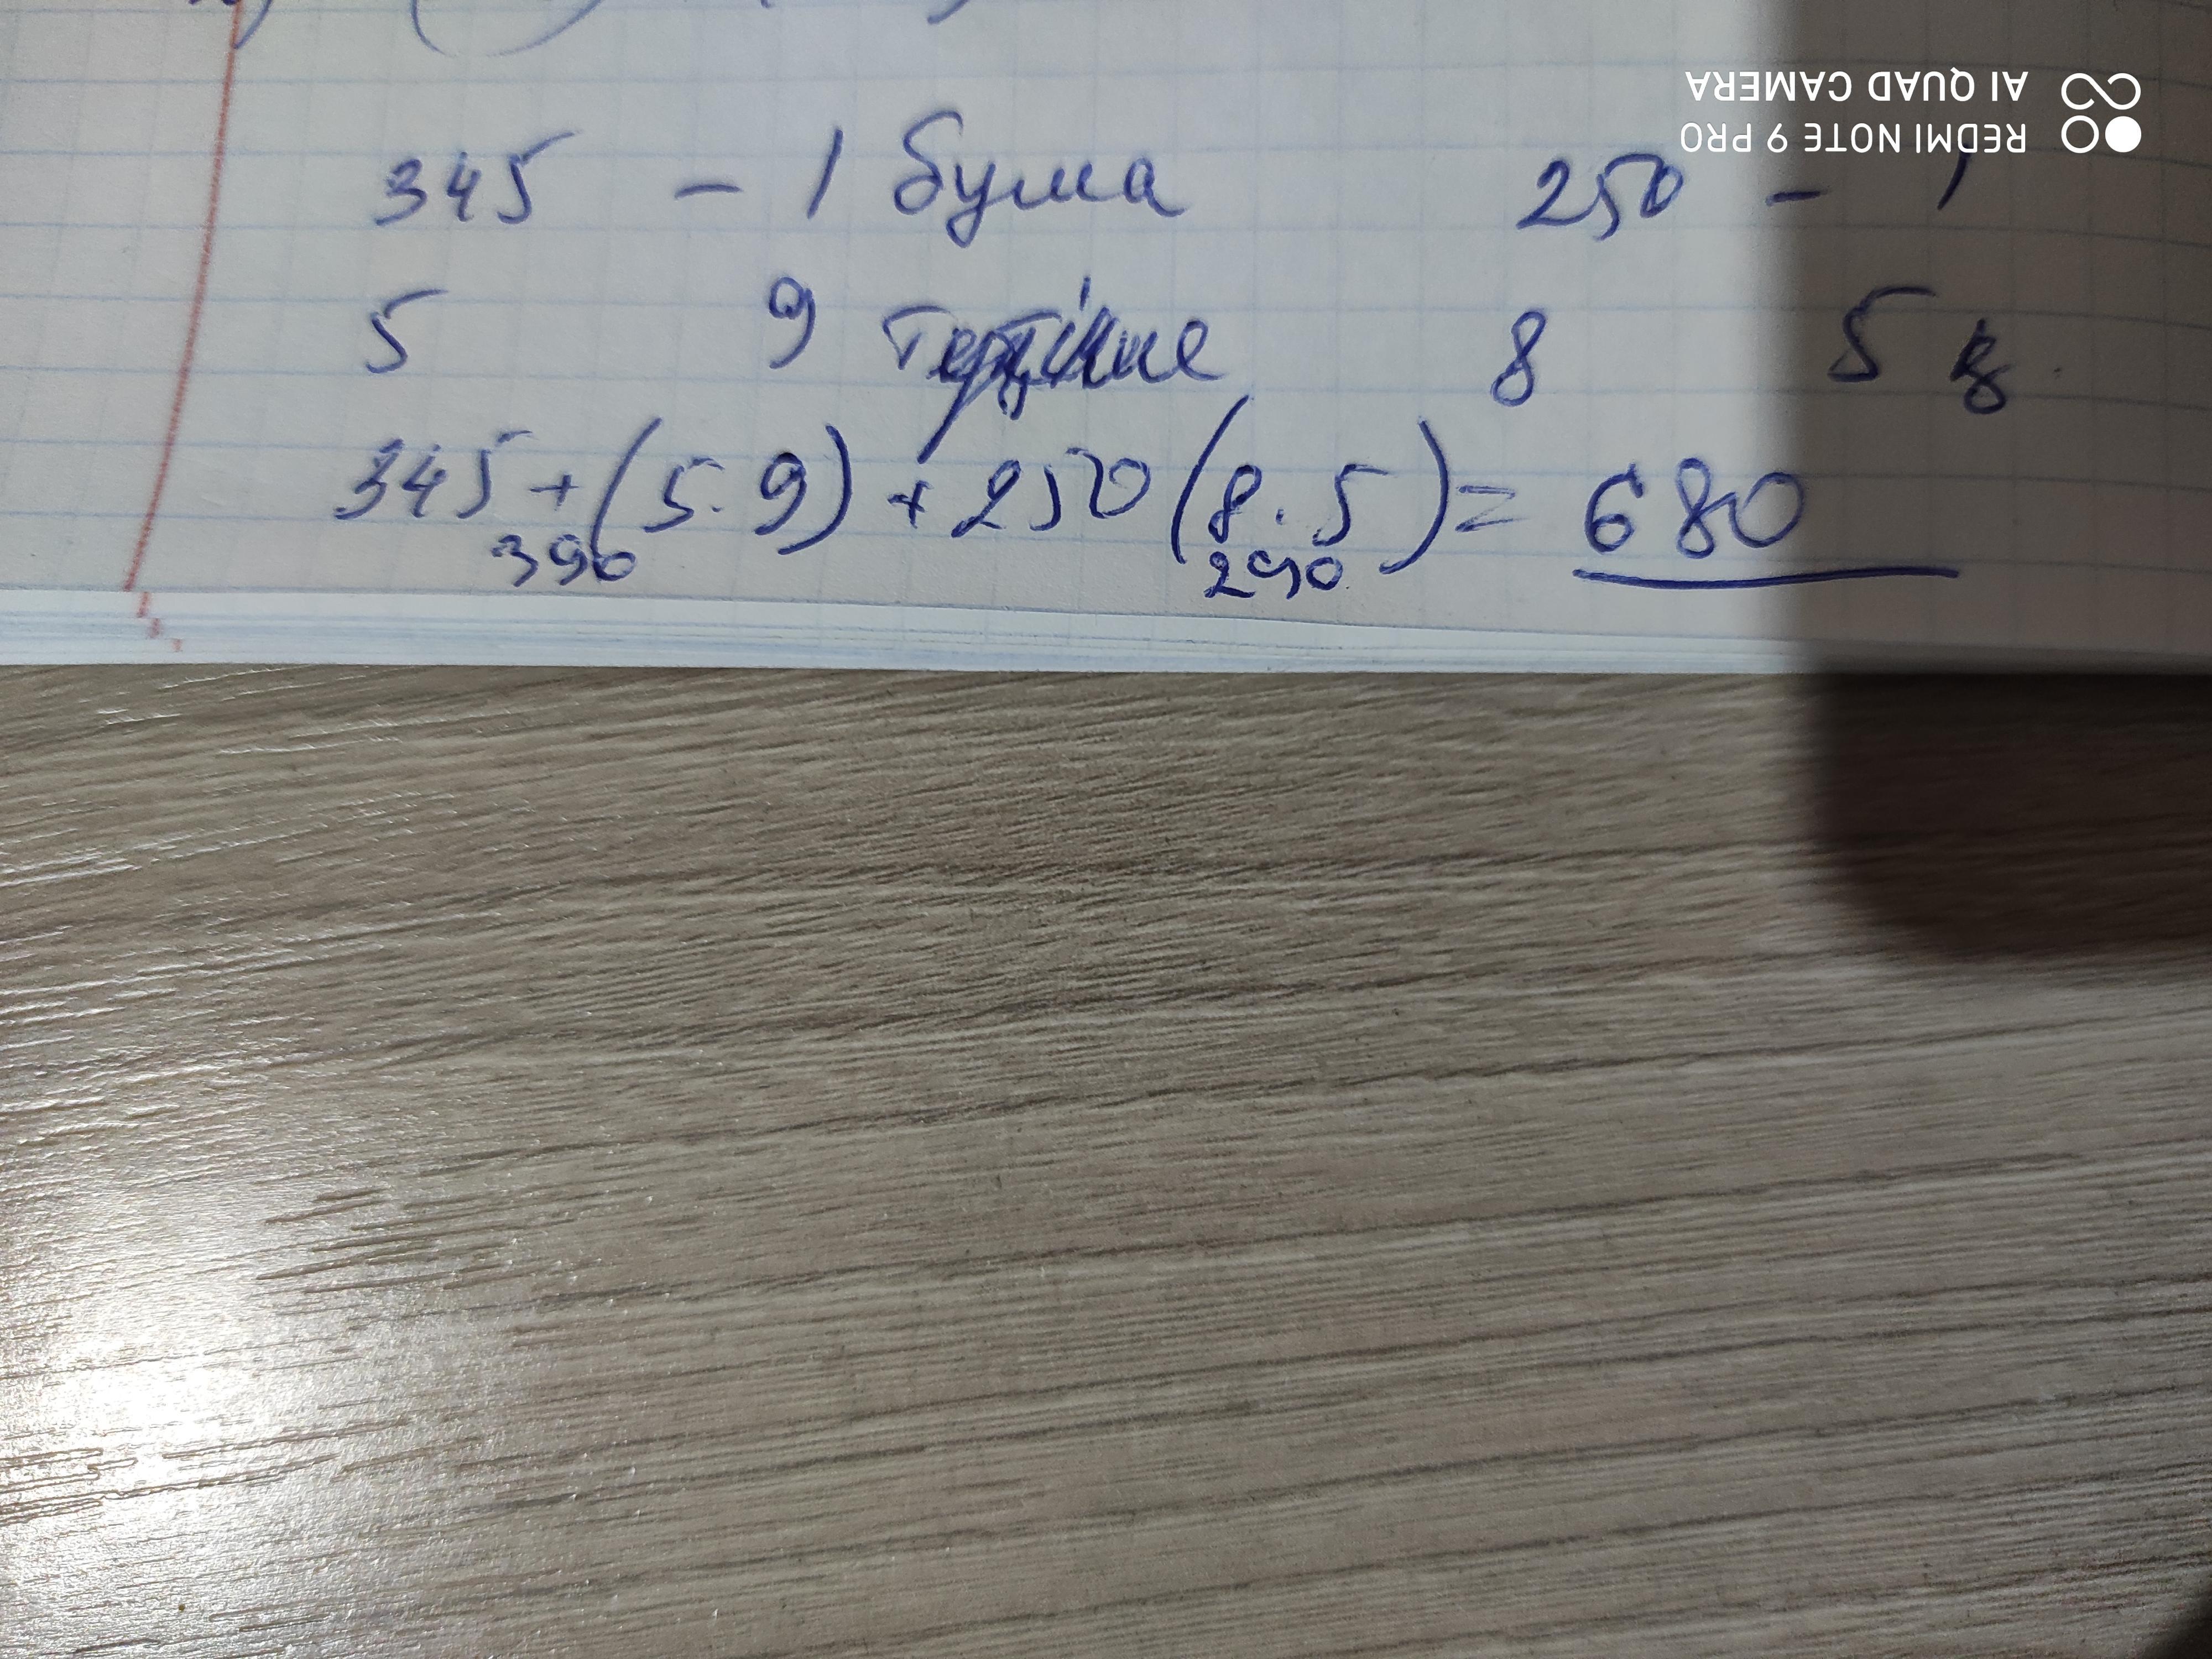 345 - 1 бума 250 - 1
5 9 8 5
345 + (5 · 9) + 250 (8 · 5) = 680
390 290
REDMI NOTE 9 PRO
AI QUAD CAMERA